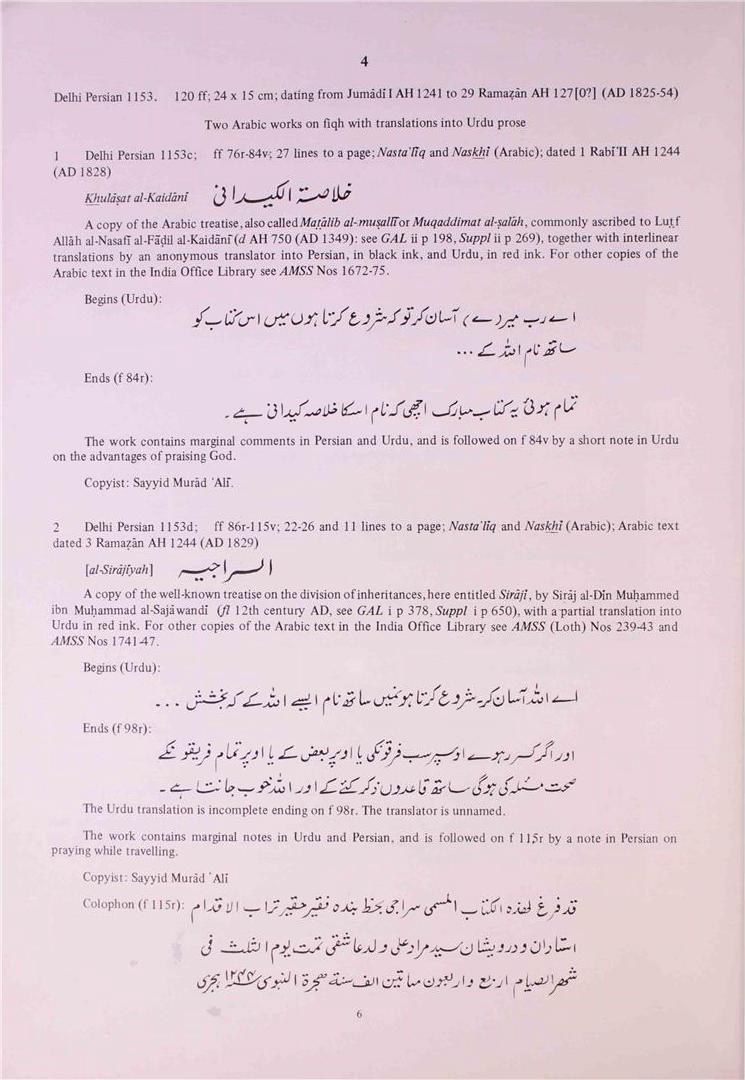 4
Delhi Persian 1153. 120 ff; 24 x 15 cm; dating from Jumâdî I AH 1241 to 29 Ramaẓân AH 127[0?] (AD 1825-54)
Two Arabic works on fiqh with translations into Urdu prose
1 Delhi Persian 1153c; ff 76r-84v; 27 lines to a page; Nasta'lîq and Naskhî (Arabic); dated 1 Rabî'II AH 1244
(AD 1828)
Khulâṣat al-Kaidânî خلاصۃ الکیدانی
A copy of the Arabic treatise, also called Maṭâlib al-muṣallî or Muqaddimat al-ṣalâh, commonly ascribed to Luṭf
Allâh al-Nasafî al-Fâḍil al-Kaidânî (d AH 750 (AD 1349): see GAL ii p 198, Suppl ii p 269), together with interlinear
translations by an anonymous translator into Persian, in black ink, and Urdu, in red ink. For other copies of the
Arabic text in the India Office Library see AMSS Nos 1672-75.
Begins (Urdu):
اے رب میر(ے) آسان کر تو کہ شروع کرتا ہوں میں اس کتاب کو
ساتھ نام اللہ کے ...
Ends (f 84r):
تمام ہوئی یہ کتاب مبارک اچھی کہ نام اسکا خلاصہ کیدانی ہے۔
The work contains marginal comments in Persian and Urdu, and is followed on f 84v by a short note in Urdu
on the advantages of praising God.
Copyist: Sayyid Murâd 'Alî.
2 Delhi Persian 1153d; ff 86r-115v; 22-26 and 11 lines to a page; Nasta'lîq and Naskhî (Arabic); Arabic text
dated 3 Ramaẓân AH 1244 (AD 1829)
[al-Sirâjîyah] السراجیہ
A copy of the well-known treatise on the division of inheritances, here entitled Sirâjî, by Sirâj al-Dîn Muḥammed
ibn Muḥammad al-Sajâwandî (fl 12th century AD, see GAL i p 378, Suppl i p 650), with a partial translation into
Urdu in red ink. For other copies of the Arabic text in the India Office Library see AMSS (Loth) Nos 239-43 and
AMSS Nos 1741-47.
Begins (Urdu):
اے اللہ آسان کر۔ شروع کرتا ہونمیں ساتھ نام ایسے اللہ کے کہ بخشش ...
Ends (f 98r):
اور اگر کسر ہووے اوسپر سب فرقونکی یا اوپر بعض کے یا اوپر تمام فریقو نکے
صحت مسئلہ کی ہوگی ساتھ قاعدوں ذکر کئے کے اور اللہ خوب جانتا ہے۔
The Urdu translation is incomplete ending on f 98r. The translator is unnamed.
The work contains marginal notes in Urdu and Persian, and is followed on f 115r by a note in Persian on
praying while travelling.
Copyist: Sayyid Murâd 'Alî
Colophon (f 115r): قد فرغ لھذہ الکتاب المسمی سراجی بخط بندہ فقیر حقیر تراب الاقدام
استادان و درویشان سید مراد علی ولد عاشقی تمت یوم الثلث فی
شھر الصیام اربع و اربعون مأتین الف سنة ھجرة النبوی سنہ ۱۲۴۴ ہجری
6